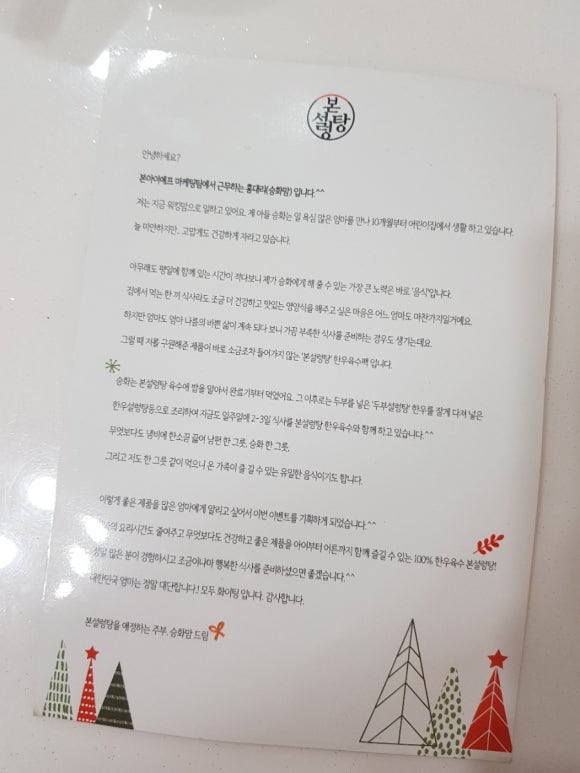 본
설렁탕
안녕하세요?
본아이에프 마케팅팀에서 근무하는 홍대리(승화맘) 입니다.^^
저는 지금 워킹맘으로 일하고 있어요. 제 아들 승화는 일 욕심 많은 엄마를 만나 10개월부터 어린이집에서 생활 하고 있습니다.
늘 미안하지만.. 고맙게도 건강하게 자라고 있습니다.
아무래도 평일에 함께 있는 시간이 적다보니 제가 승화에게 해 줄 수 있는 가장 큰 노력은 바로 '음식'입니다.
집에서 먹는 한 끼 식사라도 조금 더 건강하고 맛있는 영양식을 해주고 싶은 마음은 어느 엄마도 마찬가지일거예요.
하지만 엄마도 엄마 나름의 바쁜 삶이 계속 되다 보니 가끔 부족한 식사를 준비하는 경우도 생기는데요.
그럴 때 저를 구원해준 제품이 바로 소금조차 들어가지 않는 '본설렁탕' 한우육수팩 입니다.
승화는 본설렁탕 육수에 밥을 말아서 완료기부터 먹었어요. 그 이후로는 두부를 넣은 '두부설렁탕' 한우를 잘게 다져 넣은
한우설렁탕등으로 조리하여 지금도 일주일에 2-3일 식사를 본설렁탕 한우육수와 함께 하고 있습니다.^^
무엇보다도 냄비에 한소끔 끓여 남편 한 그릇, 승화 한 그릇,
그리고 저도 한 그릇 같이 먹으니 온 가족이 즐 길 수 있는 유일한 음식이기도 합니다.
이렇게 좋은 제품을 많은 엄마에게 알리고 싶어서 이번 이벤트를 기획하게 되었습니다.^^
요리시간도 줄여주고 무엇보다도 건강하고 좋은 제품을 아이부터 어른까지 함께 즐길 수 있는 100% 한우육수 본설렁탕!
정말 많은 분이 경험하시고 조금이나마 행복한 식사를 준비하셨으면 좋겠습니다.^^
대한민국 엄마는 정말 대단합니다.! 모두 화이팅 입니다. 감사합니다.
본설렁탕을 애정하는 주부. 승화맘 드림